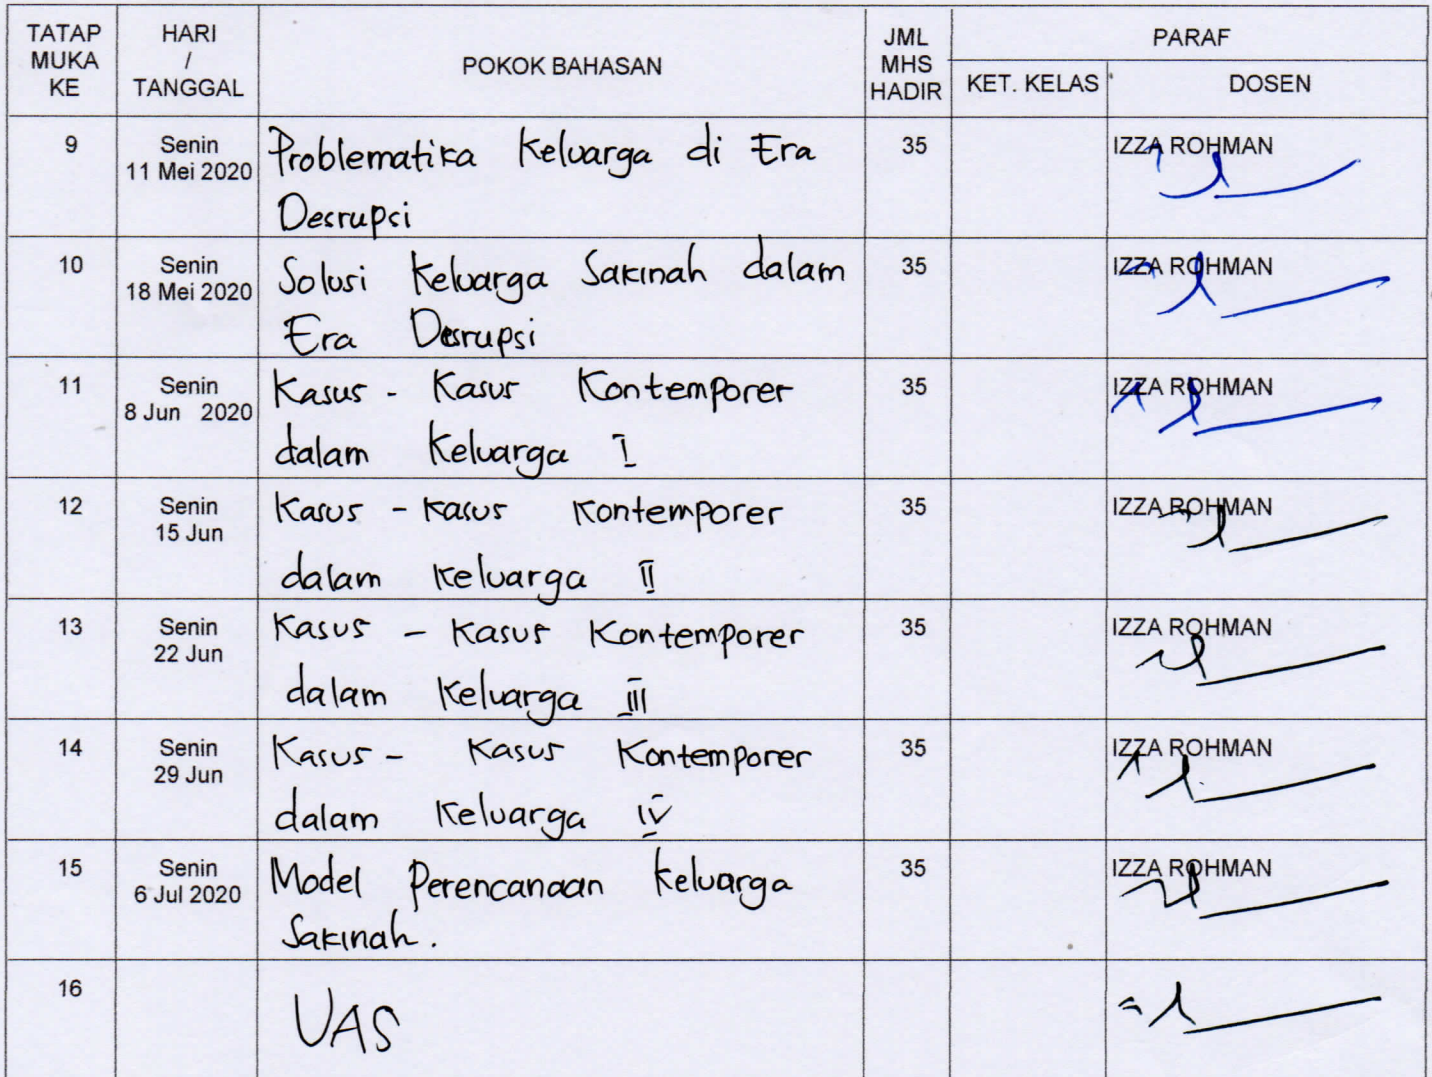 TATAP MUKA KE
HARI / TANGGAL
POKOK BAHASAN
JML MHS HADIR
PARAF
KET. KELAS
DOSEN
9
Senin
11 Mei 2020
Problematika Keluarga di Era
Desrupsi
35
IZZA ROHMAN
10
Senin
18 Mei 2020
Solusi Keluarga Sakinah dalam
Era Desrupsi
35
IZZA ROHMAN
11
Senin
8 Jun 2020
Kasus - Kasus Kontemporer
dalam Keluarga I
35
IZZA ROHMAN
12
Senin
15 Jun
Kasus - Kasus Kontemporer
dalam Keluarga II
35
IZZA ROHMAN
13
Senin
22 Jun
Kasus - Kasus Kontemporer
dalam Keluarga III
35
IZZA ROHMAN
14
Senin
29 Jun
Kasus - Kasus Kontemporer
dalam Keluarga IV
35
IZZA ROHMAN
15
Senin
6 Jul 2020
Model Perencanaan Keluarga
Sakinah.
35
IZZA ROHMAN
16
UAS